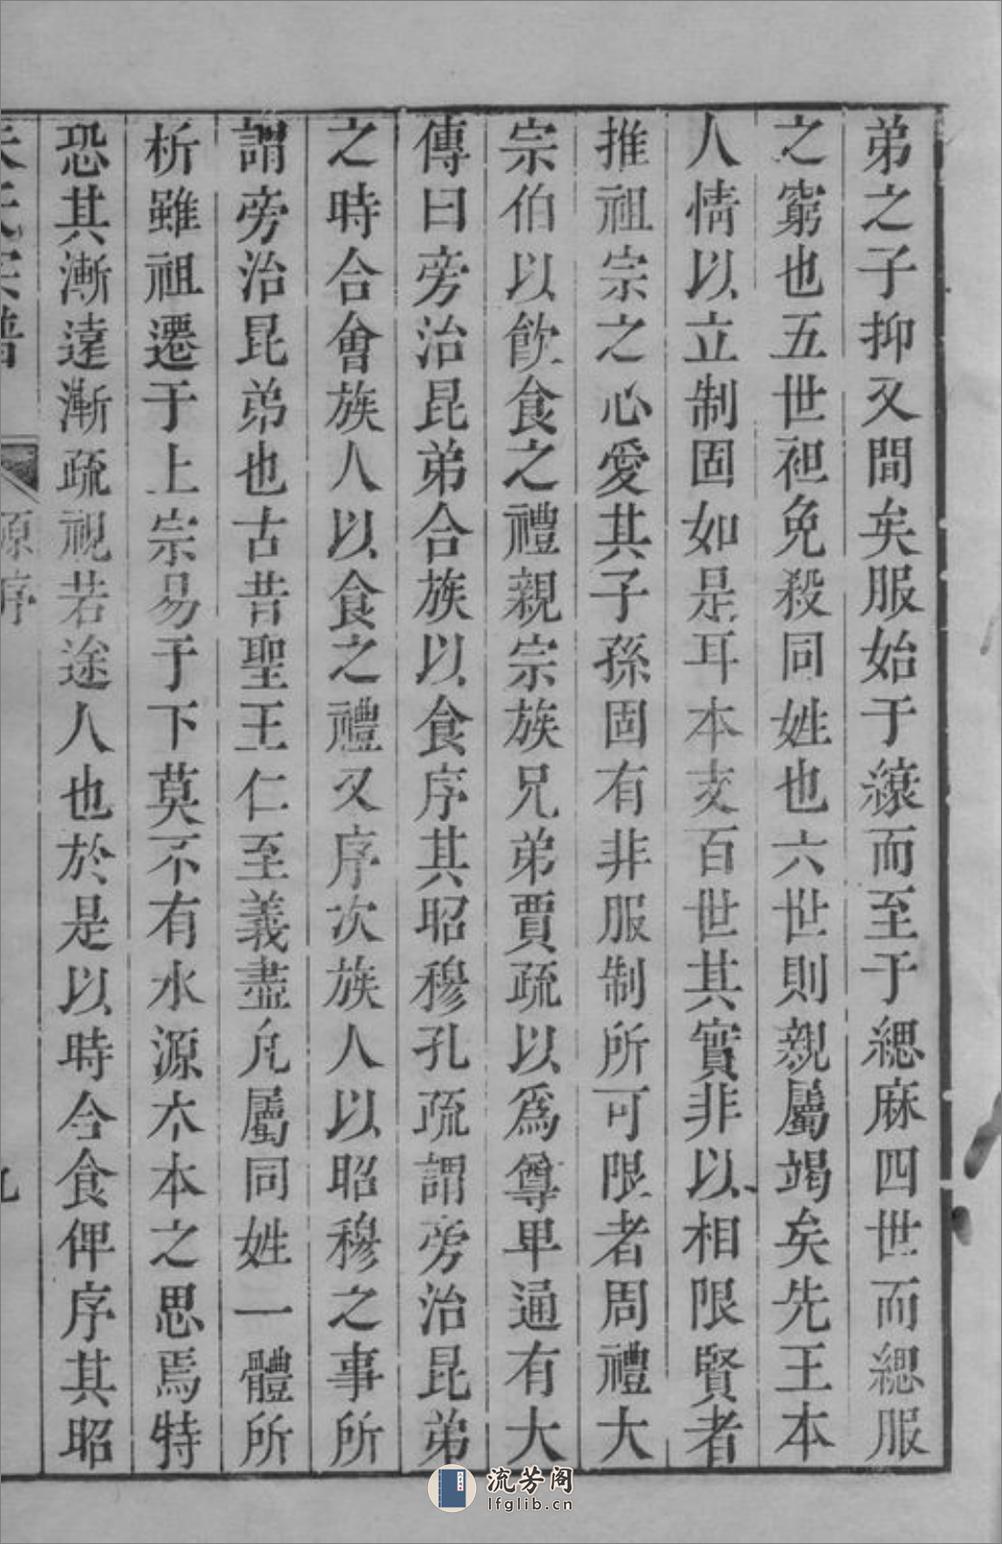 弟之子抑又間矣服始于縗而至于緦麻四世而緦服
之窮也五世袒免殺同姓也六世則親屬竭矣先王本
人情以立制固如是耳本支百世其實非以相限賢者
推祖宗之心愛其子孫固有非服制所可限者周禮大
宗伯以飲食之禮親宗族兄弟賈疏以為尊卑通有大
傳曰旁治昆弟合族以食序其昭穆孔疏謂旁治昆弟
之時合會族人以食之禮又序次族人以昭穆之事所
謂旁治昆弟也古昔聖王仁至義盡凡屬同姓一體所
析雖祖遷于上宗易于下莫不有水源木本之思焉特
恐其漸遠漸疏視若途人也於是以時合食俾序其昭
氏宗譜 源序 九
流芳阁
lfglib.cn